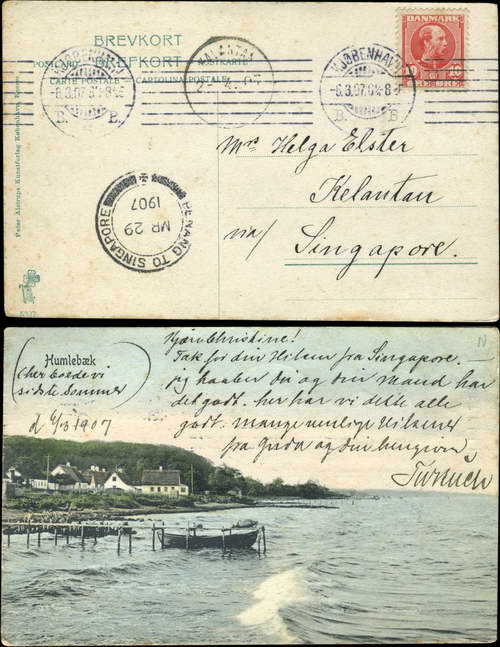 BREVKORT
BREFKORT
POSTCARD
POSTKARTE
CARTE POSTALE
CARTOLINA POSTALE
KJØBENHAVN
6.3.07. 9½-8
B. B.
KALANTAN
07
KJØBENHAVN
-6.3.07. 9½-8
B. B.
DANMARK
10 10
Mrs Helga Elster
Kelantan
via/ Singapore.
PENANG TO SINGAPORE
MR 29
1907
Peter Alstrups Kunstforlag København
Humlebæk
(her boede vi
sidste Sommer)
d 6/3 1907
Kjære Christine!
Tak for din Hilsen fra Singapore. —
jeg haaber du og din mand har
det godt. her har vi dette alle
godt. mange venlige Hilsener
fra Gerda og din hengivne